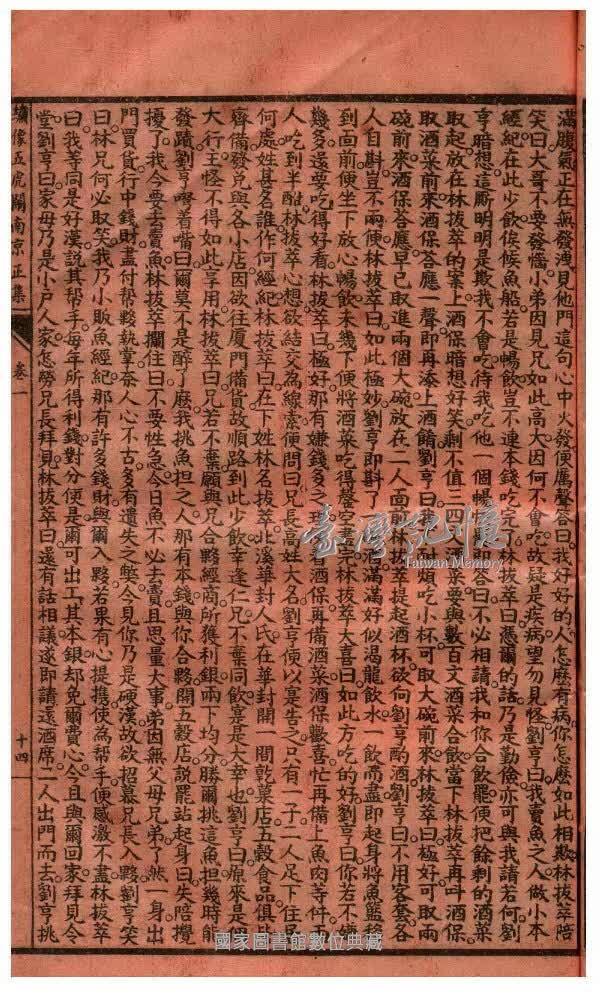 滿腹氣正在無發洩見他門這句心中火發便厲聲答曰我好好的人怎麽有病你怎麽如此相欺林拔萃陪
笑曰大哥不要發惱小弟因見兄如此高大因何不會吃故疑是疾病望勿見怪劉亨曰我賣魚之人做小本
經紀在此少飲俟候魚船若是暢飲豈不連本錢吃完林拔萃曰憑爾的話乃是勤儉亦可與我請若何劉
亨暗想這厮明明是欺我不會吃待我吃他一個暢即答曰不必相請我和你合飲罷便把餘剩的酒菜
取起放在林拔萃的案上酒保暗想好笑剩不值三四酒菜要與數百文酒菜合飲當下林拔萃再叫酒保
取酒菜前來酒保答應一聲即再添上酒餚劉亨曰我耐煩吃小杯可取大碗前來林拔萃曰極好可取兩
碗前來酒保答應早已取進兩個大碗放在二人面前林拔萃提起酒杯欲向劉亨酌酒劉亨曰不用客套各
人自斟豈不兩便林拔萃曰如此極妙劉亨即斟了酒滿滿好似渴龍飲水一飲而盡即起身將魚籃移
到面前便坐下放心暢飲未幾下便將酒菜吃得罄空完林拔萃大喜曰如此方吃的好劉亨曰你若不嫌
幾多還要吃得好看林拔萃曰極好那有嫌錢多之理着酒保再備酒菜酒保歡喜忙再備上魚肉等件
人吃到半酣林拔萃心想欲結交為線索便問曰兄長高姓大名劉亨便以實告之只有一子二人足下住居
何處姓甚名誰作何經紀林拔萃曰在下姓林名拔萃北溪華封人氏在華封開一間乾菓店五穀食品俱
齊備發兌與各小店因欲往厦門備貨故順路到此少飲幸逢仁兄不棄同飲寔是大幸也劉亨曰原來是
大行王怪不得如此享用林拔萃曰兄若不棄願與兄合夥經商所獲利銀兩下均分勝爾挑這魚担幾時能
發蹟劉亨啐着嘴曰爾莫不是醉了麽我挑魚担之人那有本錢與你合夥開五穀店説罷站起身曰失陪攪
擾了我今要去賣魚林拔萃攔住曰不要性急今日魚不必去賣且思量大事弟因無父母兄弟了然一身出
門買貨行中錢財盡付帮夥執掌奈人心不古多有遺失之弊今見你乃是硬漢故欲招慕兄長入夥劉亨笑
曰林兄何必取笑我乃小販魚經紀那有許多錢財與爾入夥若果有心提携使為帮手便感激不盡林拔萃
曰我等同是好漢説甚帮手每年所得利錢對分便是爾可出工其本銀却免爾費心今且與爾回家拜見令
堂劉亨曰家母乃是小户人家怎勞兄長拜見林拔萃曰還有話相議遂即請還酒席二人出門而去劉亨挑
繡像五虎鬧南京正集
卷一
十四
臺灣記憶
Taiwan Memory
國家圖書館數位典藏